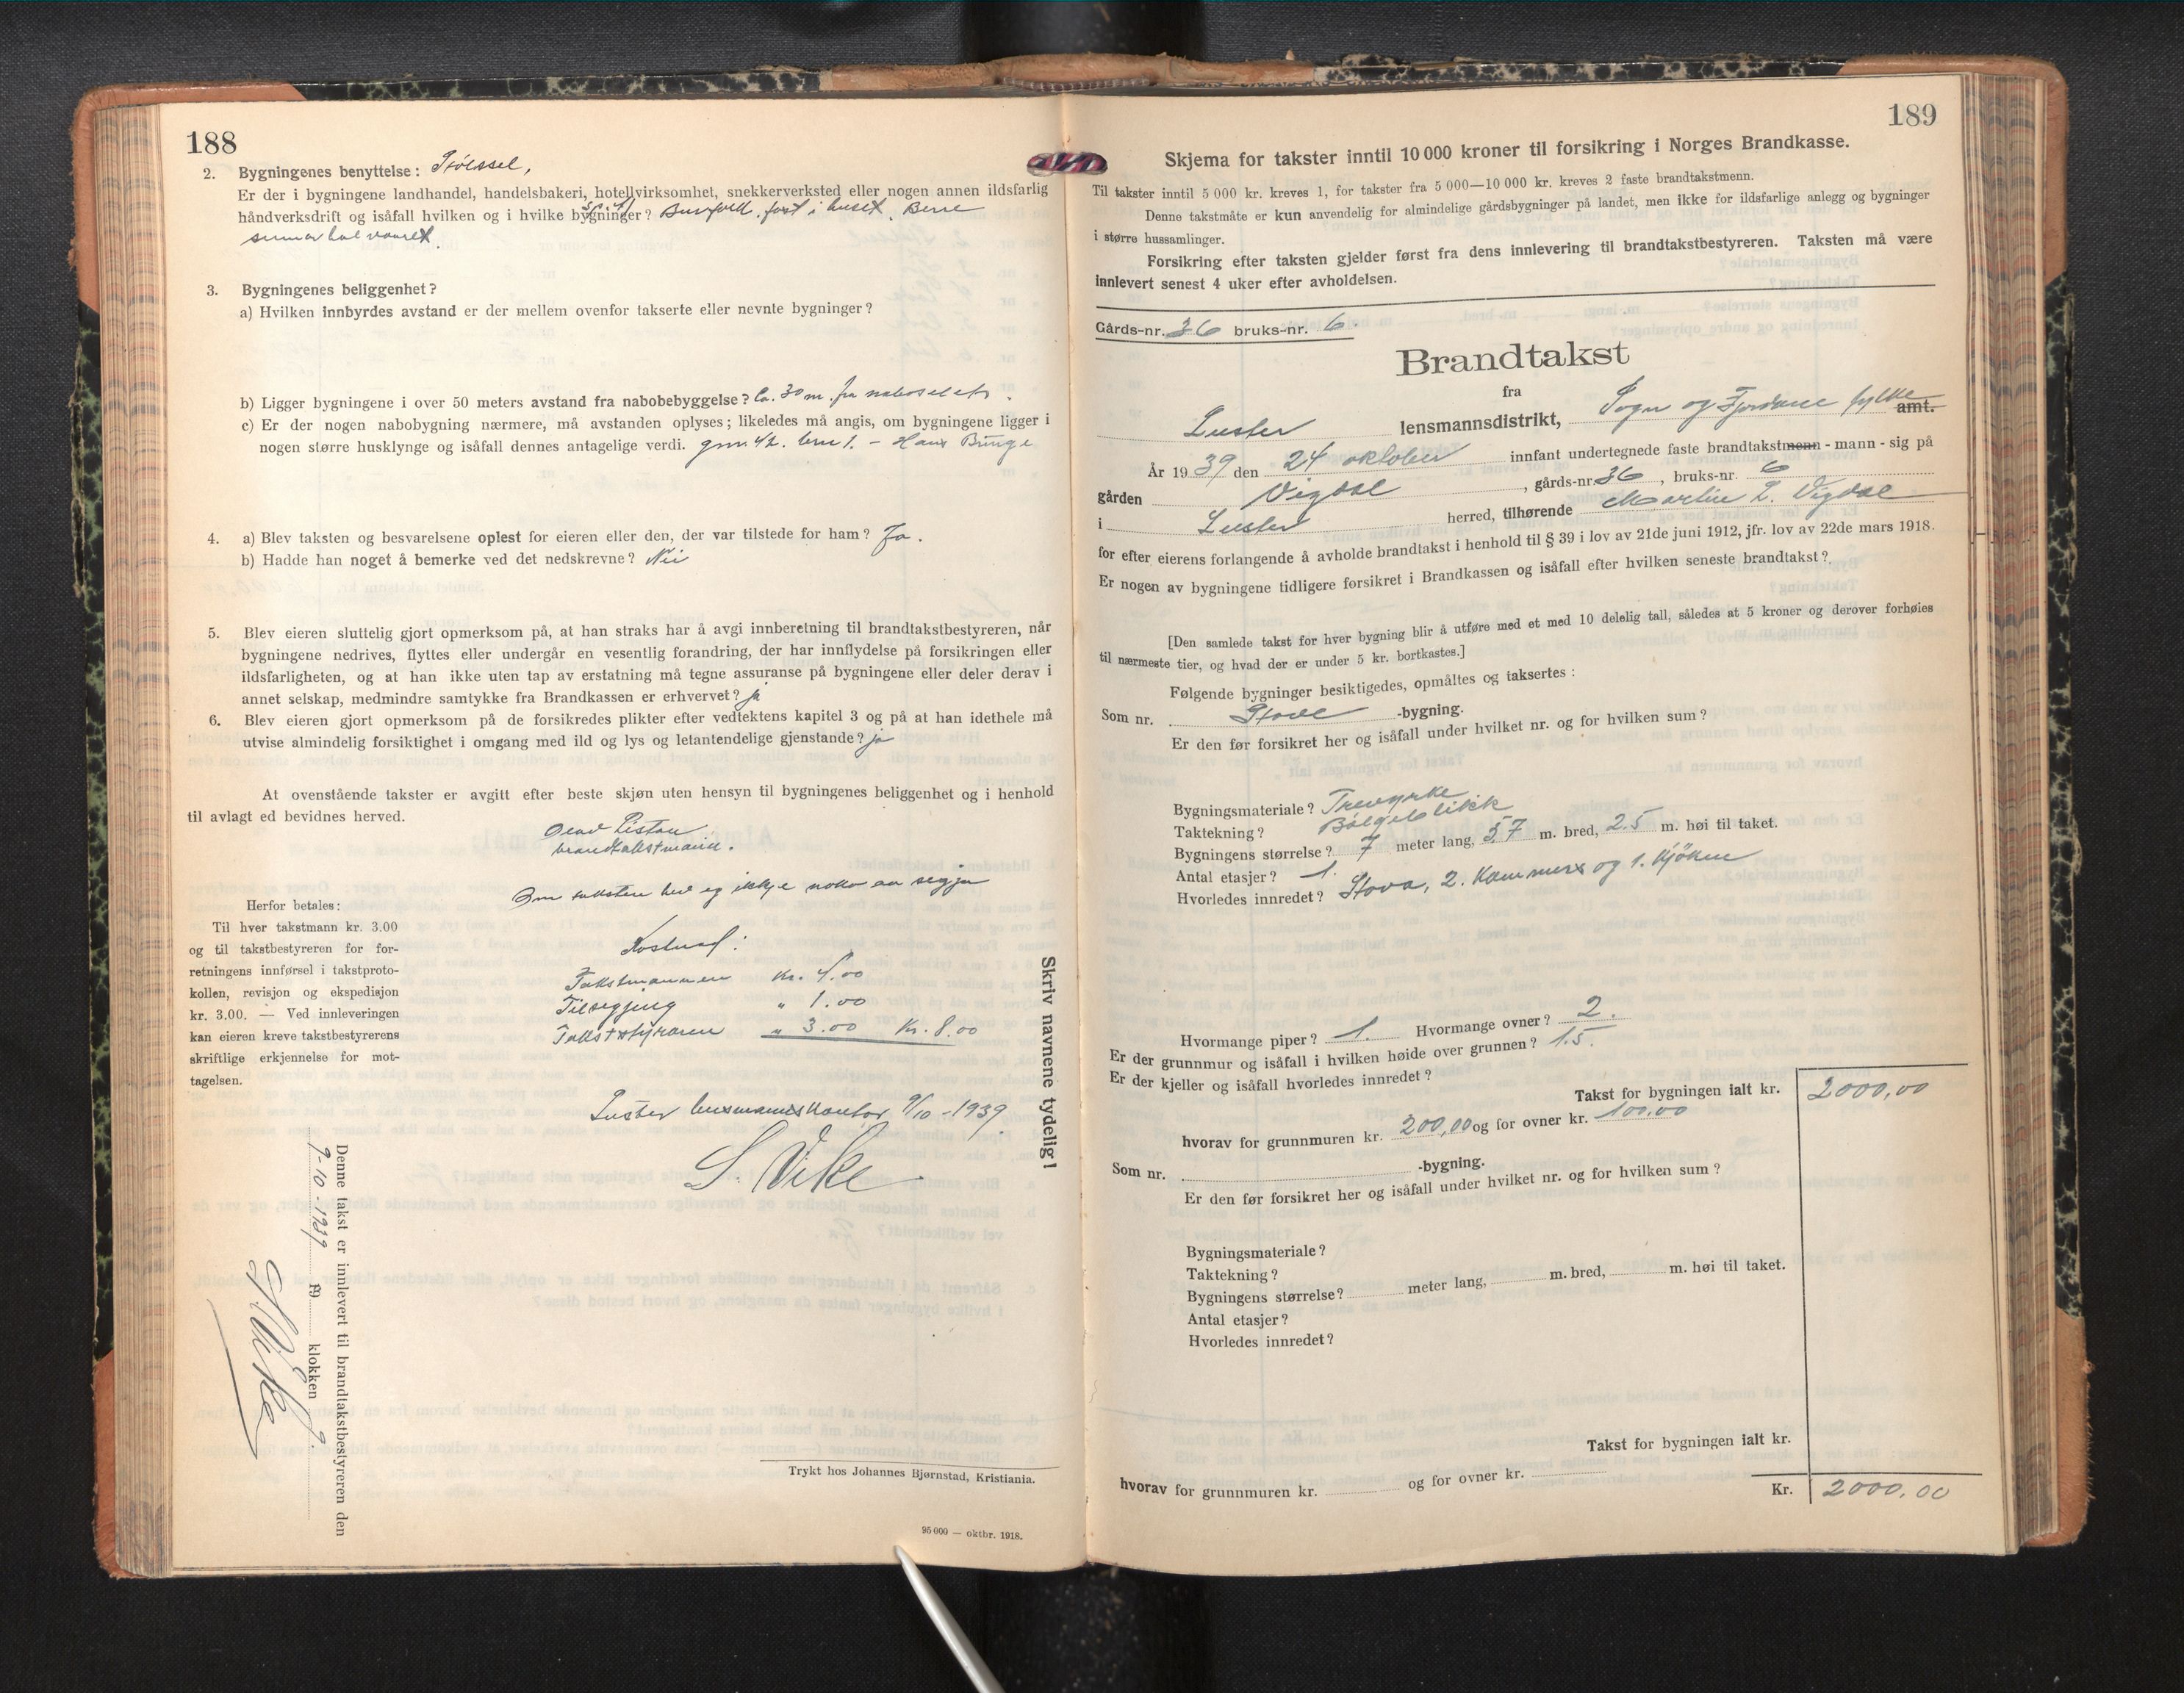 188
2. Bygningenes benyttelse: Stölssel.
Er der i bygningene landhandel, handelsbakeri, hotellvirksomhet, snekkerverksted eller nogen annen ildsfarlig
håndverksdrift og isåfall hvilken og i hvilke bygninger? fast i huset. Berre
3. Bygningenes beliggenhet?
a) Hvilken innbyrdes avstand er der mellem ovenfor takserte eller nevnte bygninger?
b) Ligger bygningene i over 50 meters avstand fra nabobebyggelse? Ca. 30 m. fra naboselet.
c) Er der nogen nabobygning nærmere, må avstanden oplyses; likeledes må angis, om bygningene ligger i
nogen større husklynge og isåfall dennes antagelige verdi. bnr 1. - Hans
4. a) Blev taksten og besvarelsene oplest for eieren eller den, der var tilstede for ham? Ja.
b) Hadde han noget å bemerke ved det nedskrevne? Nei
5. Blev eieren sluttelig gjort opmerksom på, at han straks har å avgi innberetning til brandtakstbestyreren, når
bygningene nedrives, flyttes eller undergår en vesentlig forandring, der har innflydelse på forsikringen eller
ildsfarligheten, og at han ikke uten tap av erstatning må tegne assuranse på bygningene eller deler derav i
annet selskap, medmindre samtykke fra Brandkassen er erhvervet? ja
6. Blev eieren gjort opmerksom på de forsikredes plikter efter vedtektens kapitel 3 og på at han idethele må
utvise almindelig forsiktighet i omgang med ild og lys og letantendelige gjenstande? ja
At ovenstående takster er avgitt efter beste skjøn uten hensyn til bygningenes beliggenhet og i henhold
til avlagt ed bevidnes herved.
brandtakstmann.
Om taksten hev eg ikkje noko aa segja
Herfor betales:
Til hver takstmann kr. 3.00
og til takstbestyreren for for-
retningens innførsel i takstproto-
kollen, revisjon og ekspedisjon
kr. 3.00. — Ved innleveringen
kan eieren kreve takstbestyrerens
skriftlige erkjennelse for mot-
tagelsen.
Kostnad:
Takstmannen Kr. 4.00
Tilsegjing " 1.00
Takststyraren " 3.00 Kr. 8.00
Luster lensmannskontor 9/10 - 1939.
S. Vike
Skriv navnene tydelig!
Denne takst er innlevert til brandtakstbestyreren den
9-10-1939 19 klokken 9.
S. Vike
Trykt hos Johannes Bjørnstad, Kristiania.
95 000 — oktbr. 1918.
189
Skjema for takster inntil 10 000 kroner til forsikring i Norges Brandkasse.
Til takster inntil 5 000 kr. kreves 1, for takster fra 5 000—10 000 kr. kreves 2 faste brandtakstmenn.
Denne takstmåte er kun anvendelig for almindelige gårdsbygninger på landet, men ikke for ildsfarlige anlegg og bygninger
i større hussamlinger.
Forsikring efter taksten gjelder først fra dens innlevering til brandtakstbestyreren. Taksten må være
innlevert senest 4 uker efter avholdelsen.
Gårds-nr. 36 bruks-nr. 6.
Brandtakst
fra
Luster lensmannsdistrikt, Sogn og Fjordane fylke amt.
År 1939 den 24 oktober innfant undertegnede faste brandtakstmenn - mann - sig på
gården Vigdal, gårds-nr 36, bruks-nr. 6
i Luster herred, tilhørende Martin L. Vigdal
for efter eierens forlangende å avholde brandtakst i henhold til § 39 i lov av 21de juni 1912, jfr. lov av 22de mars 1918.
Er nogen av bygningene tidligere forsikret i Brandkassen og isåfall efter hvilken seneste brandtakst?
[Den samlede takst for hver bygning blir å utføre med et med 10 delelig tall, således at 5 kroner og derover forhøies
til nærmeste tier, og hvad der er under 5 kr. bortkastes.]
Følgende bygninger besiktigedes, opmåltes og taksertes:
Som nr. -bygning.
Er den før forsikret her og isåfall under hvilket nr. og for hvilken sum?
Bygningsmateriale? Trevyrke
Taktekning? Bölgeblikk
Bygningens størrelse? 7 meter lang, 5.7 m. bred, 2.5 m. høi til taket.
Antal etasjer? 1.
Hvorledes innredet? Stova, 2. Kammers og 1. Kjöken
Hvormange piper? 1. Hvormange ovner? 2.
Er der grunnmur og isåfall i hvilken høide over grunnen? 1.5.
Er der kjeller og isåfall hvorledes innredet?
Takst for bygningen ialt kr. 2000,00
hvorav for grunnmuren kr. 200,00 og for ovner kr. 100.00
Som nr. -bygning.
Er den før forsikret her og isåfall under hvilket nr. og for hvilken sum?
Bygningsmateriale?
Taktekning?
Bygningens størrelse? meter lang, m. bred, m. høi til taket.
Antal etasjer?
Hvorledes innredet?
Takst for bygningen ialt kr.
hvorav for grunnmuren kr. og for ovner kr.
Kr. 2000.00